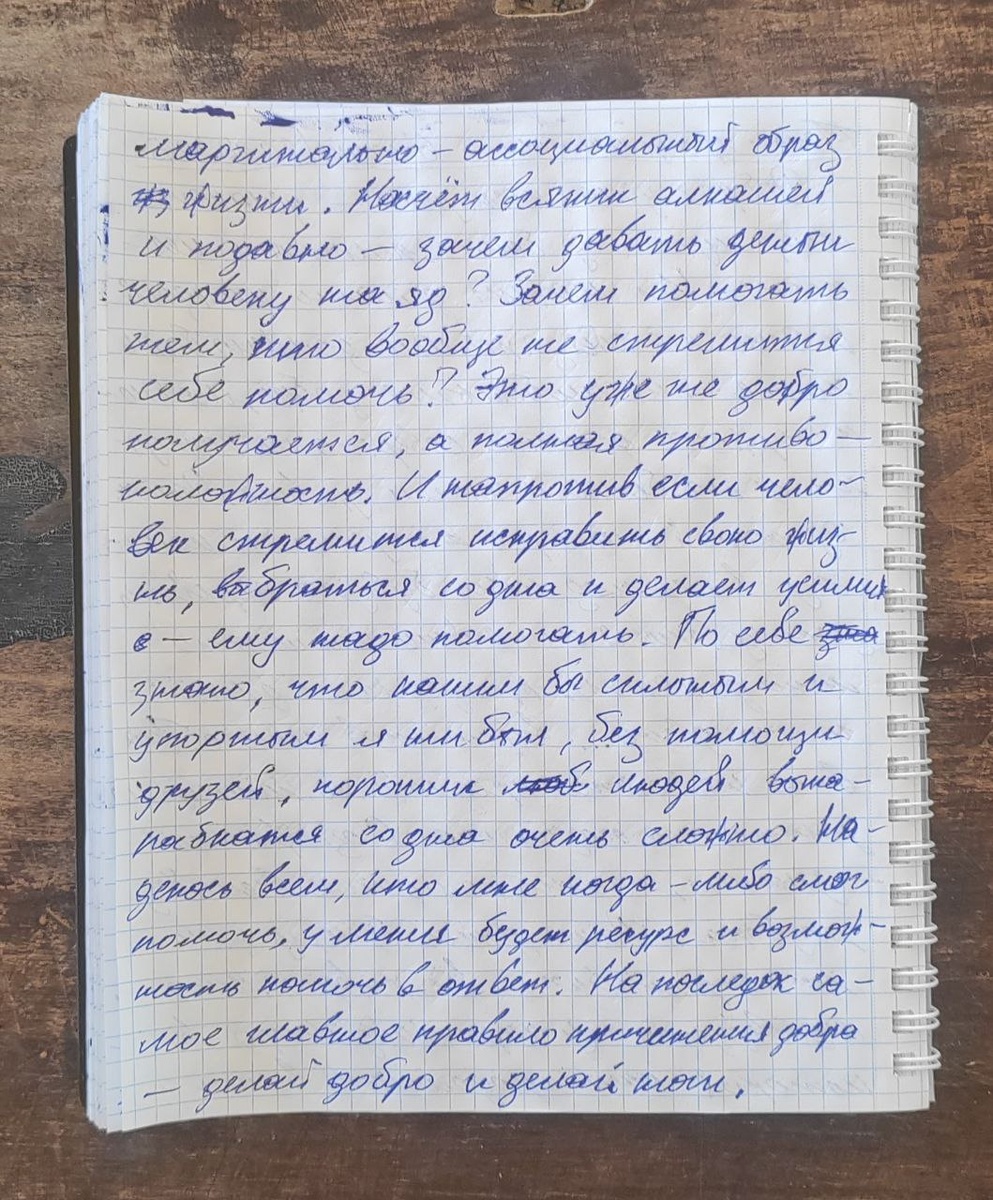 маргинально – ассоциальный образ
жизни. Насчёт всяких алкашей
и подавно – зачем давать деньги
человеку на яд? Зачем помогать
тем, кто вообще не стремится
себе помочь? Это уже не добро
получается, а полная противо–
положность. И напротив если чело–
век стремится исправить свою жиз–
нь, выбраться со дна и делает усилия
– ему надо помогать. По себе
знаю, что каким бы сильным и
упорным я ни был, без помощи
друзей, хороших людей выка–
рабкатся со дна очень сложно. На–
деюсь всем, кто мне когда–либо смог
помочь, у меня будет ресурс и возмож–
ность помочь в ответ. На последок са–
мое главное правило причинения добра
– делай добро и делай ноги.